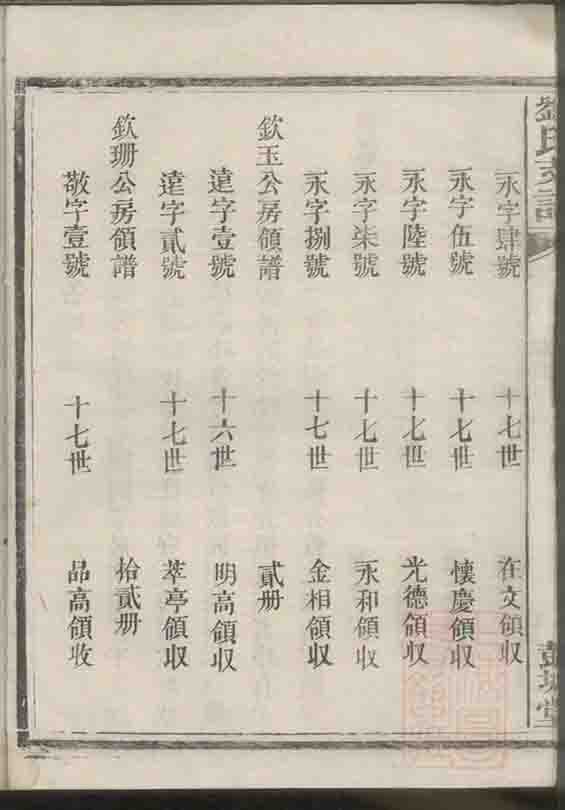 劉氏支譜
彭城堂
永字肆號 十七世 在文領収
永字伍號 十七世 懷慶領収
永字陸號 十七世 光德領収
永字柒號 十七世 永和領収
永字捌號 十七世 金相領収
欽玉公房領譜 貳册
達字壹號 十六世 明高領収
達字貳號 十七世 萃亭領収
欽珊公房領譜 拾貳册
敬字壹號 十七世 品高領收